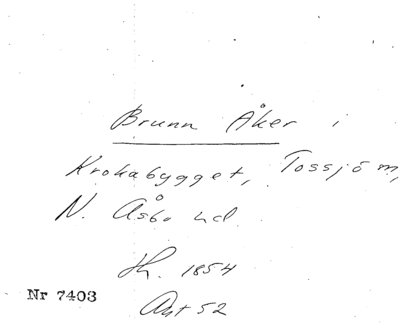 Brunn Åker i
Krokabygget, Tossjö m,
N. Åsbo hd
Hh. 1854
Akt 52
Nr 7403